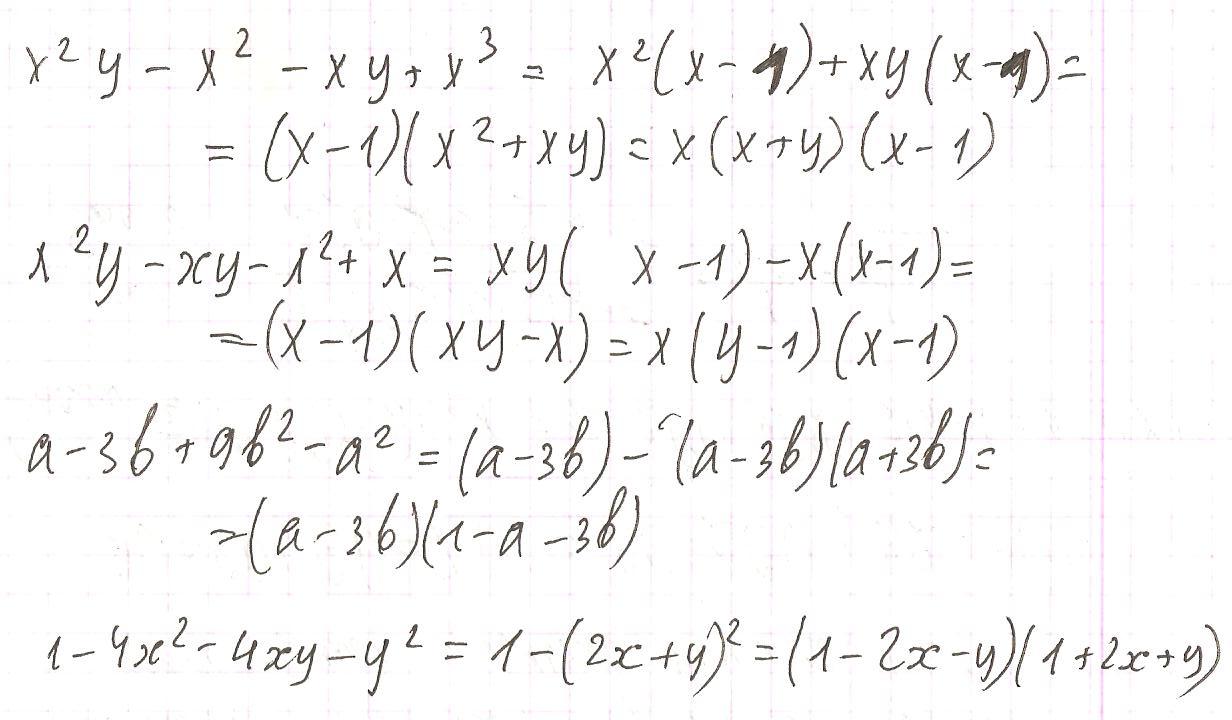 x² y - x² - xy + x³ = x²(x - 1) + xy(x - 1) =
= (x - 1)(x² + xy) = x(x + y)(x - 1)
x²y - xy - x² + x = xy( x - 1) - x(x - 1) =
= (x - 1)(xy - x) = x(y - 1)(x - 1)
a - 3b + 9b² - a² = (a - 3b) - (a - 3b)(a + 3b) =
= (a - 3b)(1 - a - 3b)
1 - 4x² - 4xy - y² = 1 - (2x + y)² = (1 - 2x - y)(1 + 2x + y)